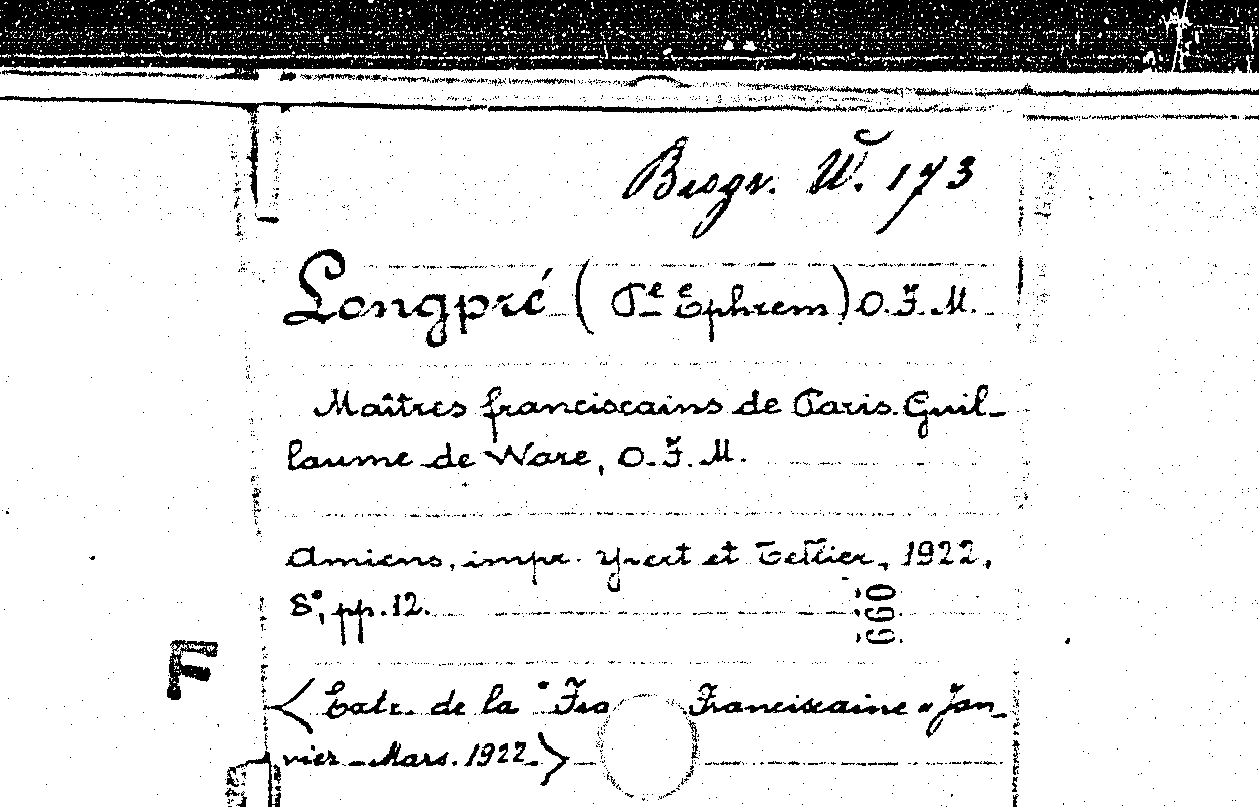 Biogr. W. 173
Longpré (Pe Ephrem) O.F.M.
Maîtres franciscains de Paris. Guil-
laume de Ware, O.F.M.
Amiens, impr. Yvert et Tellier, 1922,
8°, pp. 12.
660
F
<Extr. de la "Fra Franciscaine" Jan-
vier-Mars. 1922>